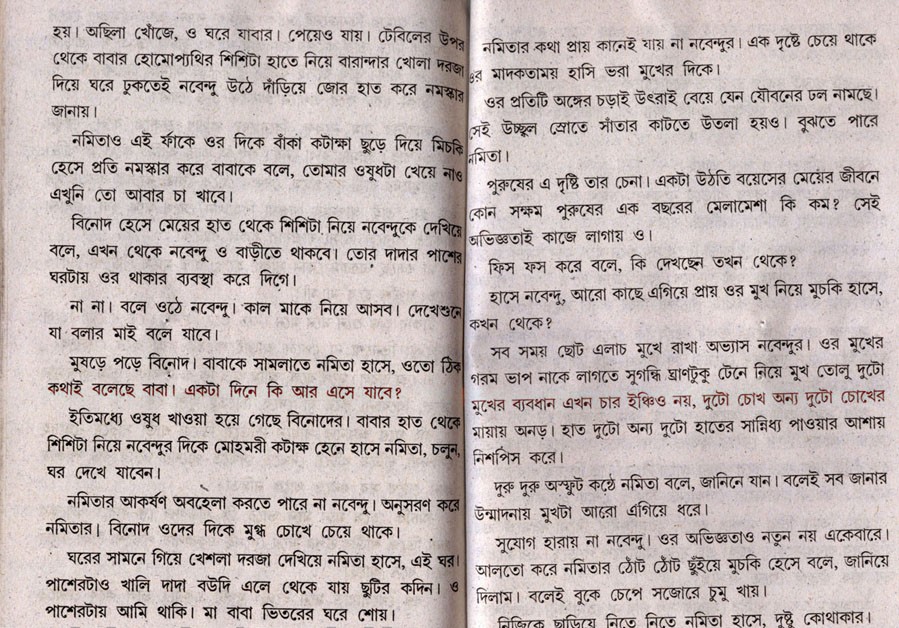 হয়। অছিলা খোঁজে, ও ঘরে যাবার। পেয়েও যায়। টেবিলের উপর
থেকে বাবার হোমোপ্যথির শিশিটা হাতে নিয়ে বারান্দার খোলা দরজা
দিয়ে ঘরে ঢুকতেই নবেন্দু উঠে দাঁড়িয়ে জোর হাত করে নমস্কার
জানায়।
নমিতাও এই ফাঁকে ওর দিকে বাঁকা কটাক্ষা ছুড়ে দিয়ে মিচকি
হেসে প্রতি নমস্কার করে বাবাকে বলে, তোমার ওষুধটা খেয়ে নাও
এখুনি তো আবার চা খাবে।
বিনোদ হেসে মেয়ের হাত থেকে শিশিটা নিয়ে নবেন্দুকে দেখিয়ে
বলে, এখন থেকে নবেন্দু ও বাড়ীতে থাকবে। তোর দাদার পাশের
ঘরটায় ওর থাকার ব্যবস্থা করে দিগে।
না না। বলে ওঠে নবেন্দু। কাল মাকে নিয়ে আসব। দেখেশুনে
যা বলার মাই বলে যাবে।
মুষড়ে পড়ে বিনোদ। বাবাকে সামলাতে নমিতা হাসে, ওতো ঠিক
কথাই বলেছে বাবা। একটা দিনে কি আর এসে যাবে?
ইতিমধ্যে ওষুধ খাওয়া হয়ে গেছে বিনোদের। বাবার হাত থেকে
শিশিটা নিয়ে নবেন্দুর দিকে মোহমরী কটাক্ষ হেনে হাসে নমিতা, চলুন,
ঘর দেখে যাবেন।
নমিতার আকর্ষণ অবহেলা করতে পারে না নবেন্দু। অনুসরণ করে
নমিতার। বিনোদ ওদের দিকে মুগ্ধ চোখে চেয়ে থাকে।
ঘরের সামনে গিয়ে খেশলা দরজা দেখিয়ে নমিতা হাসে, এই ঘর।
পাশেরটাও খালি দাদা বউদি এলে থেকে যায় ছুটির কদিন। ও
পাশেরটায় আমি থাকি। মা বাবা ভিতরের ঘরে শোয়।
নমিতার কথা প্রায় কানেই যায় না নবেন্দুর। এক দৃষ্টে চেয়ে থাকে
ওর মাদকতাময় হাসি ভরা মুখের দিকে।
ওর প্রতিটি অঙ্গের চড়াই উৎরাই বেয়ে যেন যৌবনের ঢল নামছে।
সেই উচ্ছ্বল স্রোতে সাঁতার কাটতে উতলা হয়ও। বুঝতে পারে
নমিতা।
পুরুষের এ দৃষ্টি তার চেনা। একটা উঠতি বয়েসের মেয়ের জীবনে
কোন সক্ষম পুরুষের এক বছরের মেলামেশা কি কম? সেই
অভিজ্ঞতাই কাজে লাগায় ও।
ফিস ফস করে বলে, কি দেখছেন তখন থেকে?
হাসে নবেন্দু, আরো কাছে এগিয়ে প্রায় ওর মুখ নিয়ে মুচকি হাসে,
কখন থেকে?
সব সময় ছোট এলাচ মুখে রাখা অভ্যাস নবেন্দুর। ওর মুখের
গরম ভাপ নাকে লাগতে সুগন্ধি ঘ্রাণটুকু টেনে নিয়ে মুখ তোলু দুটো
মুখের ব্যবধান এখন চার ইঞ্চিও নয়, দুটো চোখ অন্য দুটো চোখের
মায়ায় অনড়। হাত দুটো অন্য দুটো হাতের সান্নিধ্য পাওয়ার আশায়
নিশপিস করে।
দুরু দুরু অস্ফুট কণ্ঠে নমিতা বলে, জানিনে যান। বলেই সব জানার
উন্মাদনায় মুখটা আরো এগিয়ে ধরে।
সুযোগ হারায় না নবেন্দু। ওর অভিজ্ঞতাও নতুন নয় একেবারে।
আলতো করে নমিতার ঠোঁট ঠোঁট ছুঁইয়ে মুচকি হেসে বলে, জানিয়ে
দিলাম। বলেই বুকে চেপে সজোরে চুমু খায়।
নিজিকে ছাড়িয়ে নিতে নিতে নমিতা হাসে, দুষ্টু কোথাকার।